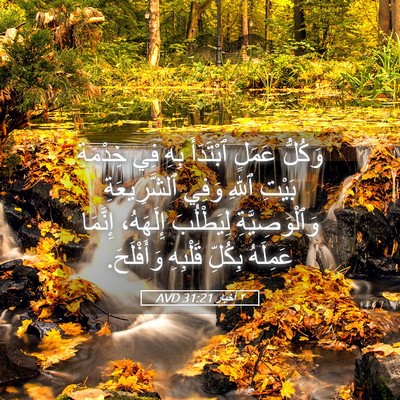 وَكُلُّ عَمَلٍ ٱبْتَدَأَ بِهِ فِي خِدْمَةِ
بَيْتِ ٱللهِ وَفِي ٱلشَّرِيعَةِ
وَٱلْوَصِيَّةِ لِيَطْلُبَ إِلَهَهُ، إِنَّمَا
عَمِلَهُ بِكُلِّ قَلْبِهِ وَأَفْلَحَ.
٢ أخبار 31:21 AVD